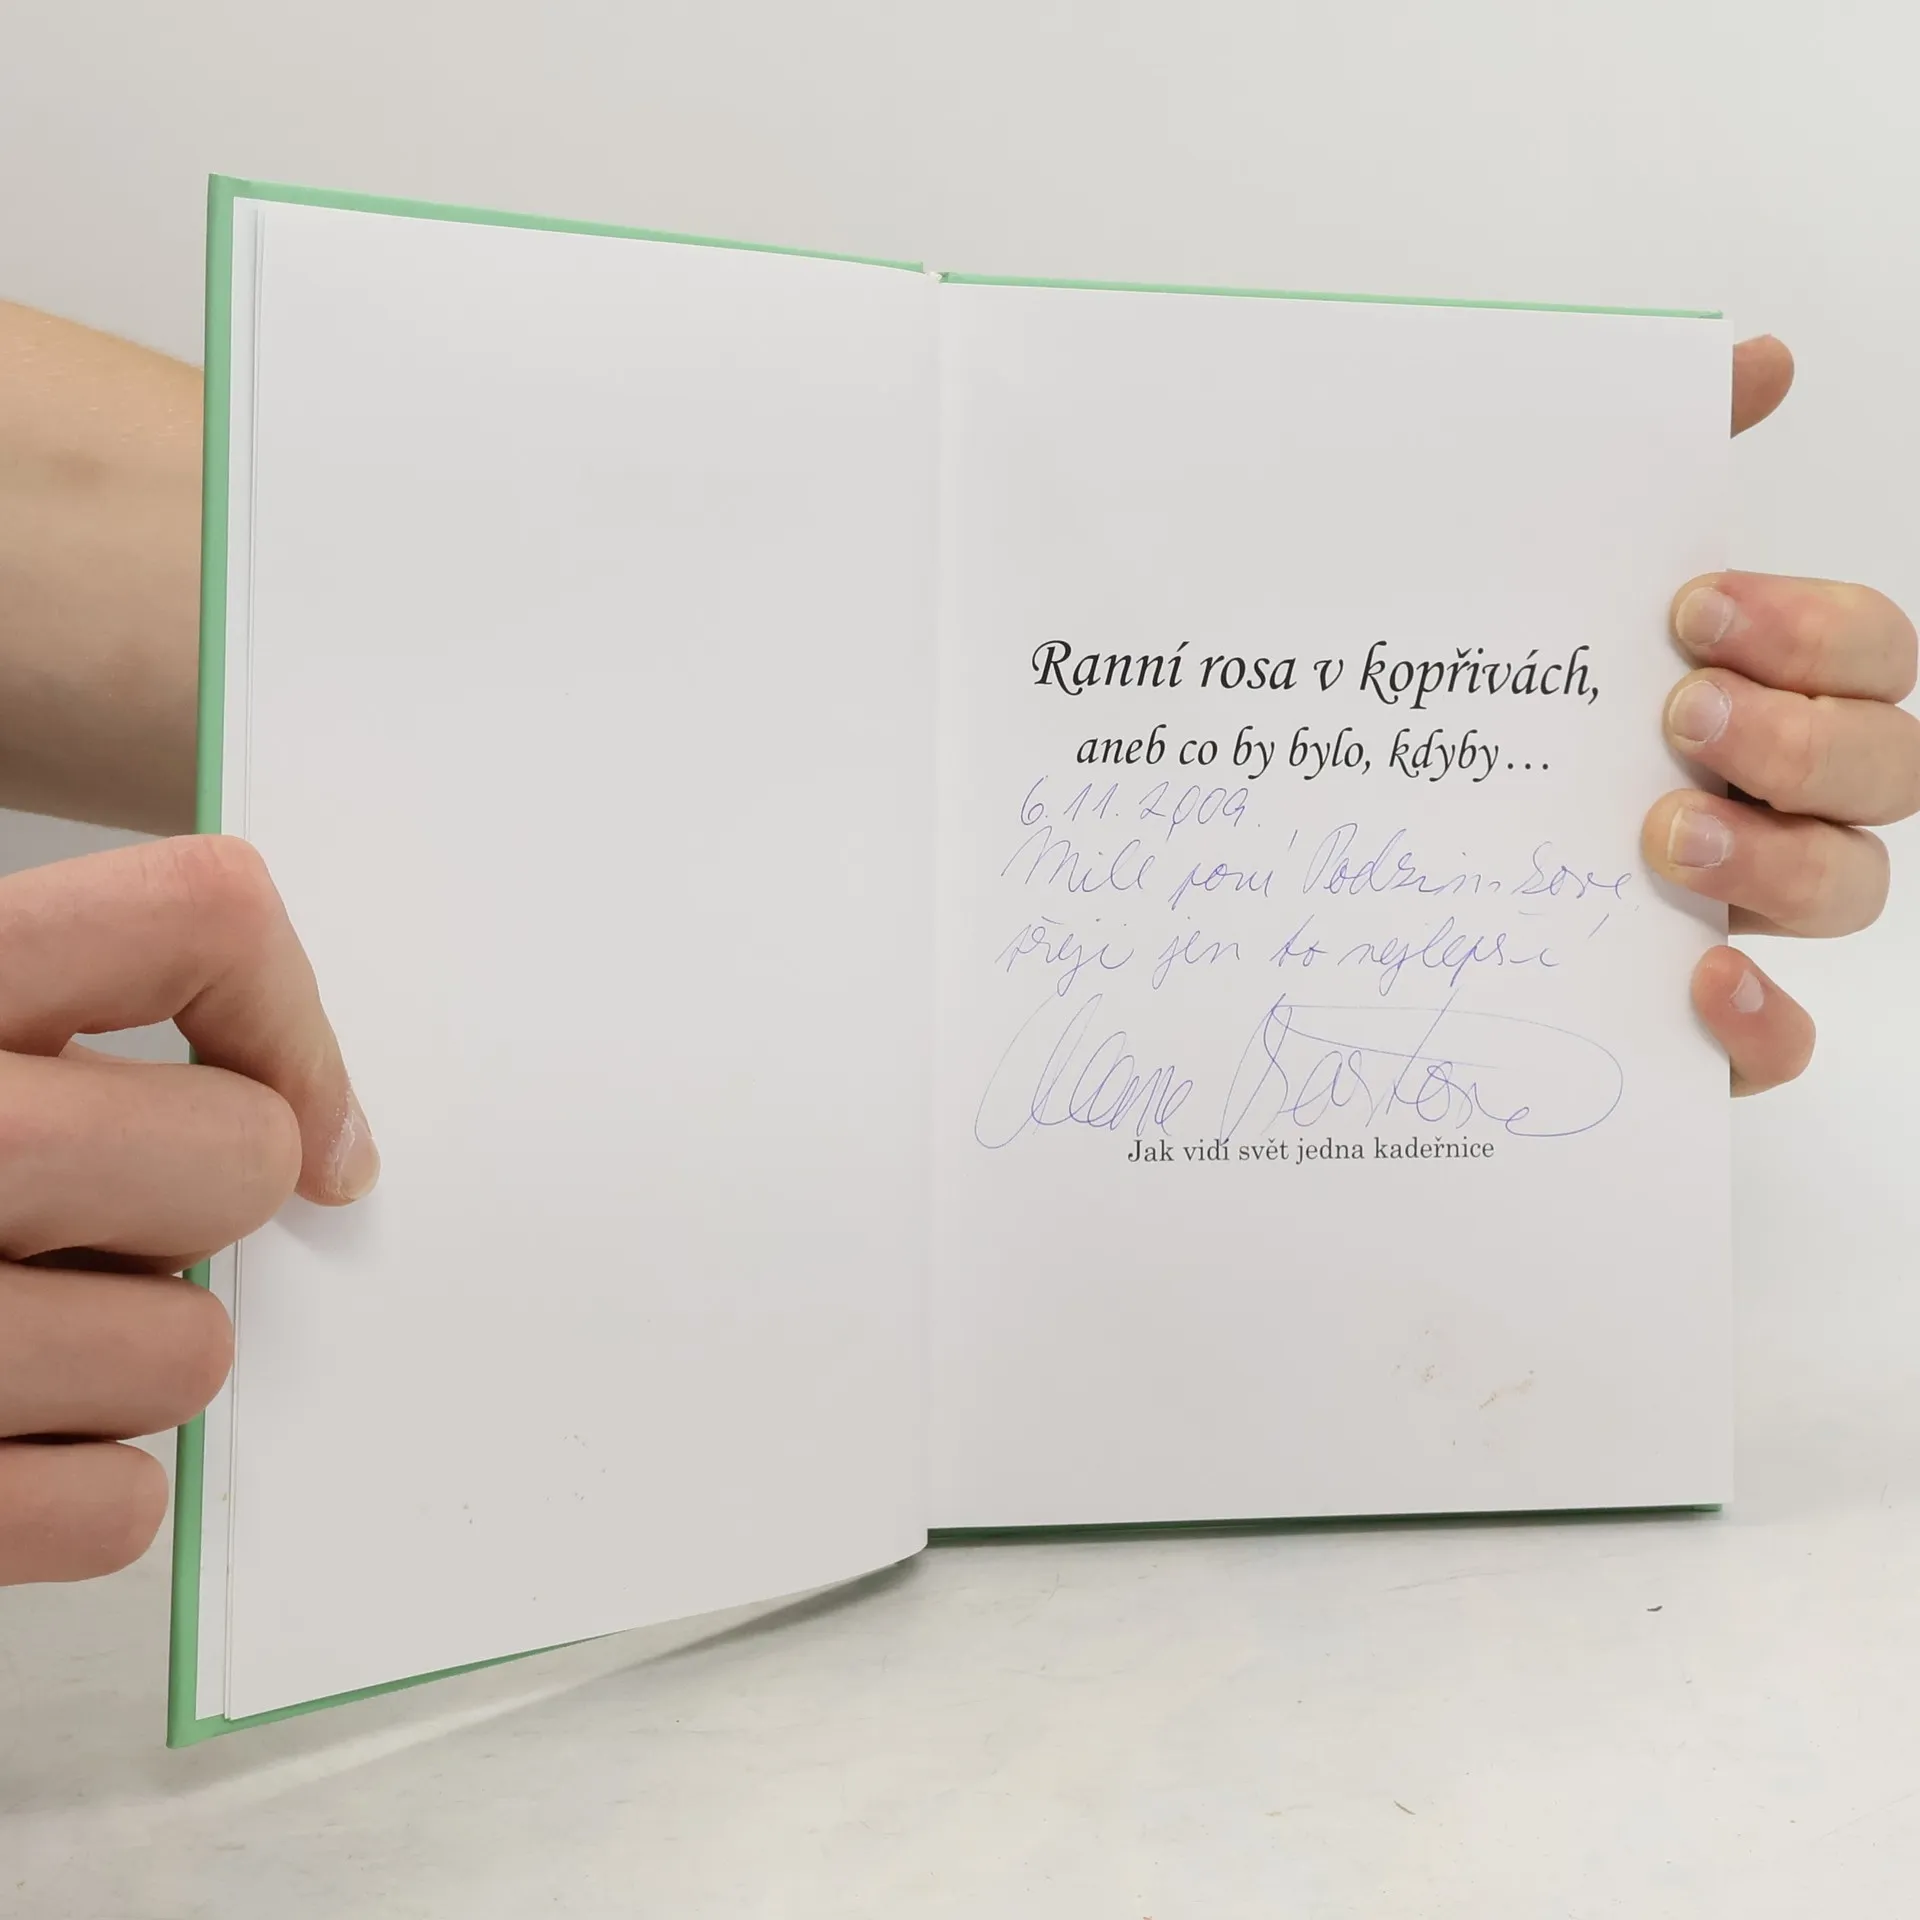 Ranní rosa v kopřivách,
aneb co by bylo, kdyby...
6.11.2009.
Milé paní Podzimkové,
přeji jen to nejlepší
Jak vidí svět jedna kadeřnice